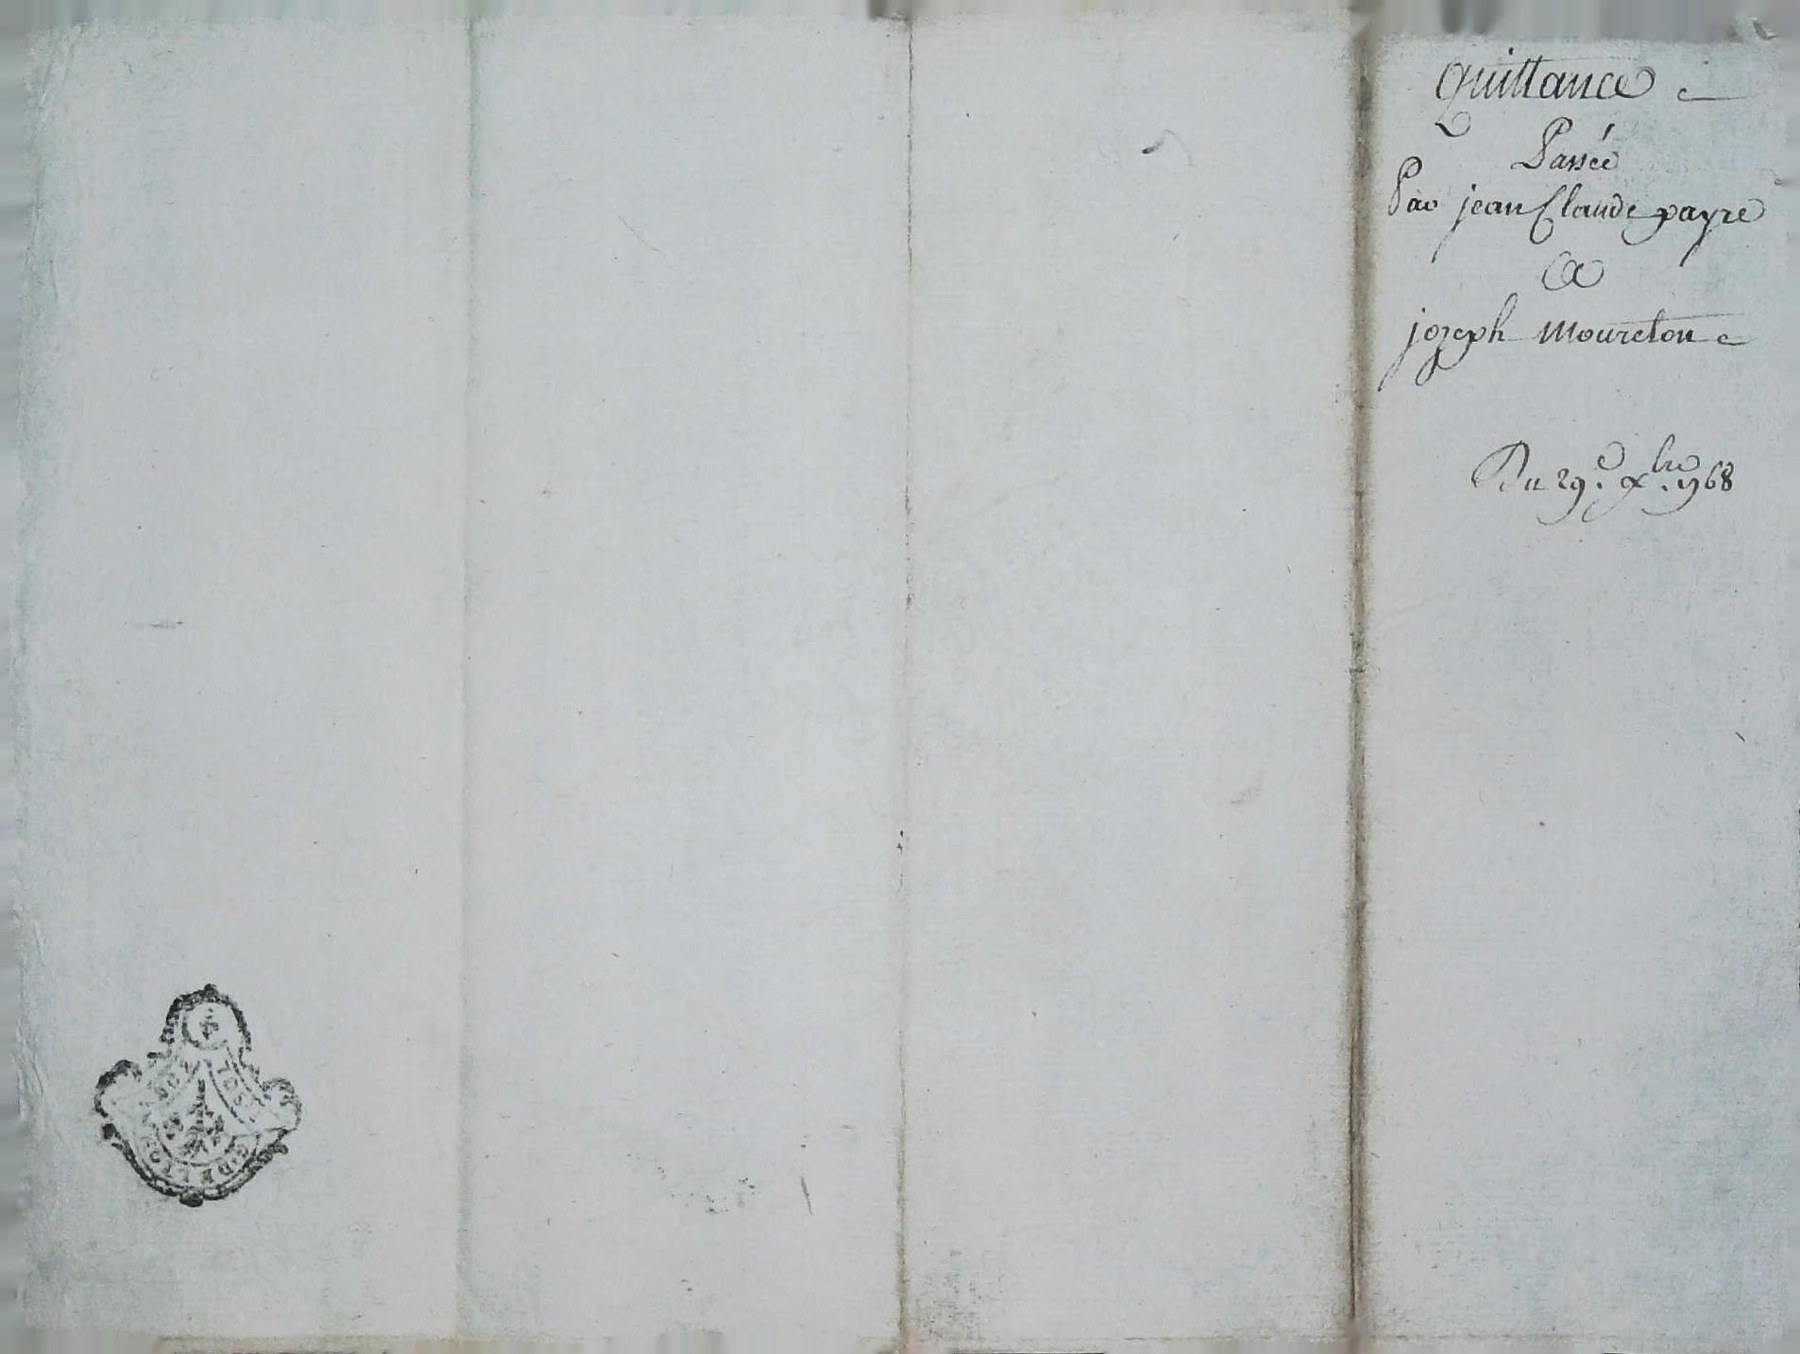 Quittance
Passée
Par jean Claude payre
a
joseph moureton
Du 29.e xbre. 1768